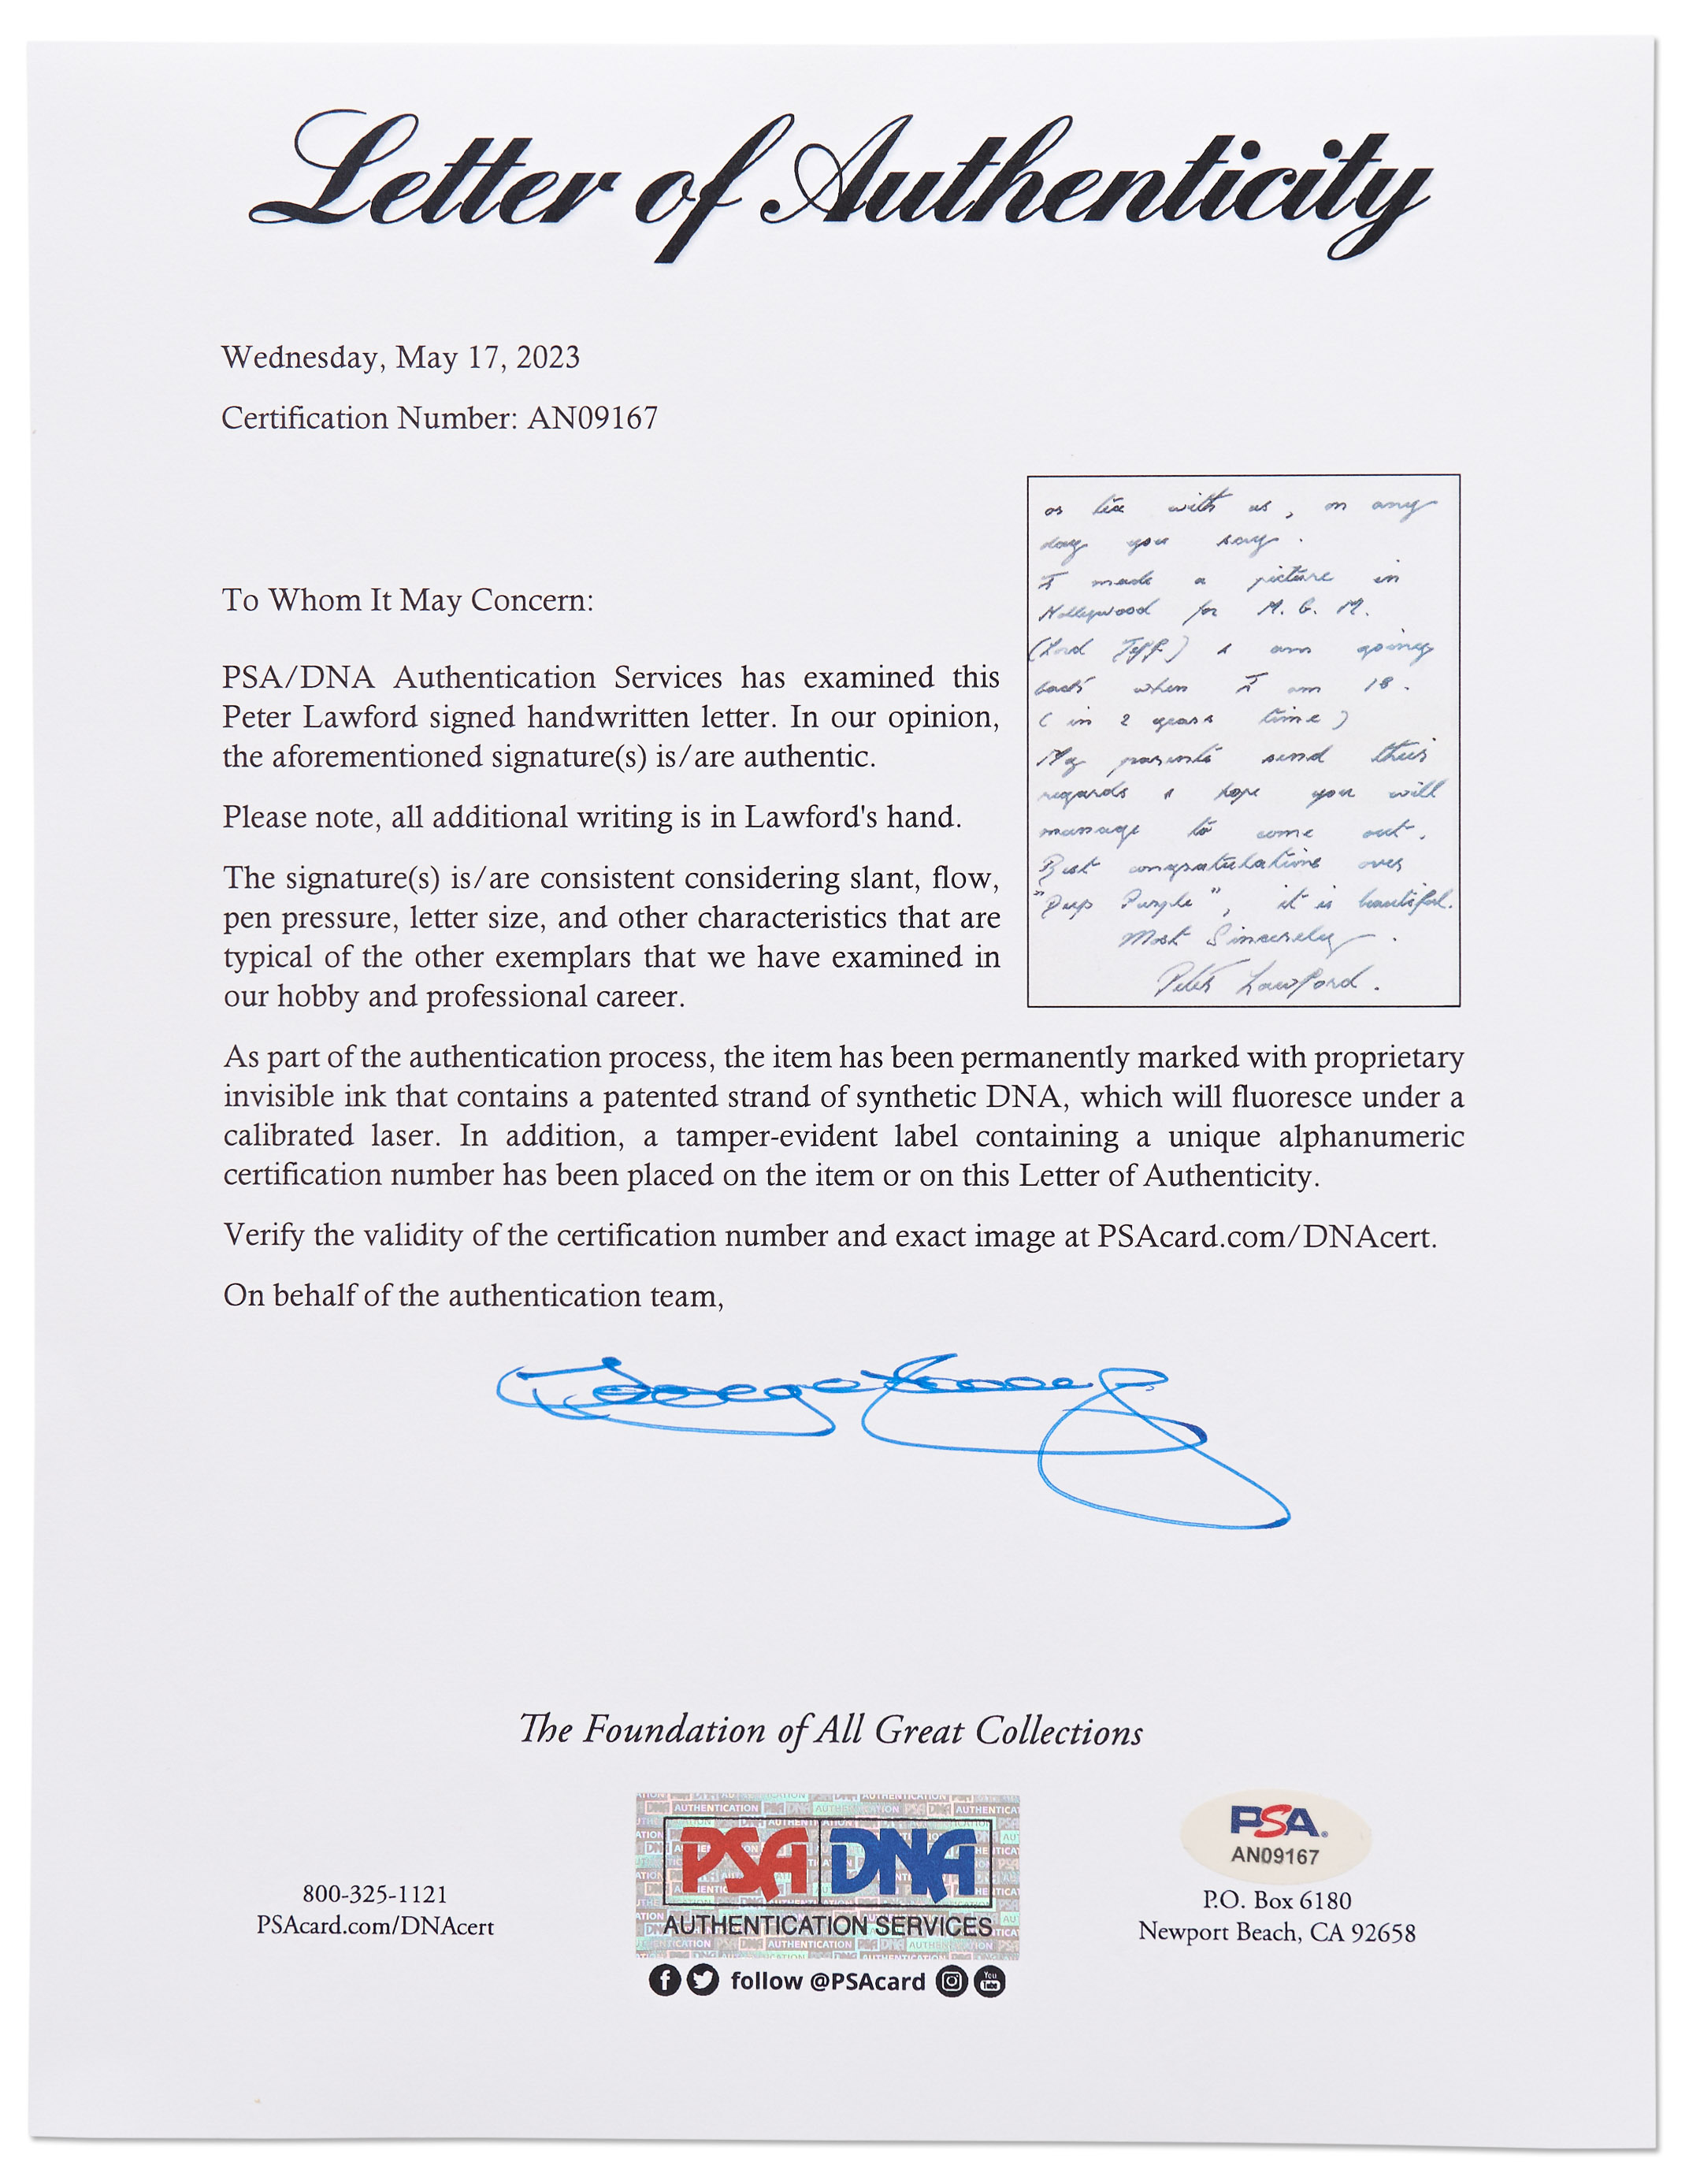 Letter of Authenticity
Wednesday, May 17, 2023
Certification Number: AN09167
To Whom It May Concern:
PSA/DNA Authentication Services has examined this
Peter Lawford signed handwritten letter. In our opinion,
the aforementioned signature(s) is/are authentic.
Please note, all additional writing is in Lawford's hand.
The signature(s) is/are consistent considering slant, flow,
pen pressure, letter size, and other characteristics that are
typical of the other exemplars that we have examined in
our hobby and professional career.
or tea with us, on any
day you say.
I made a picture in
Hollywood for M.G.M.
(Lord Jeff) & am going
back when I am 18.
(in 2 years time)
My parents send their
regards & hope you will
manage to come out.
Best congratulations over
"Deep Purple", it is beautiful.
Most Sincerely.
Peter Lawford.
As part of the authentication process, the item has been permanently marked with proprietary
invisible ink that contains a patented strand of synthetic DNA, which will fluoresce under a
calibrated laser. In addition, a tamper-evident label containing a unique alphanumeric
certification number has been placed on the item or on this Letter of Authenticity.
Verify the validity of the certification number and exact image at PSAcard.com/DNAcert.
On behalf of the authentication team,
The Foundation of All Great Collections
800-325-1121
PSAcard.com/DNAcert
PSA DNA
AUTHENTICATION SERVICES
follow @PSAcard
PSA
AN09167
P.O. Box 6180
Newport Beach, CA 92658